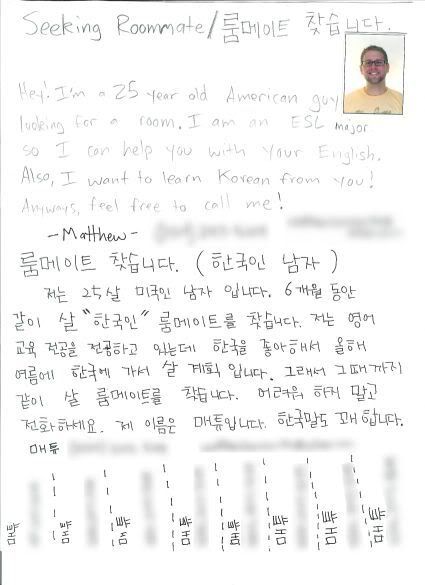 Seeking Roommate/룸메이트 찾습니다.
Hey! I'm a 25 year old American guy
looking for a room. I am an ESL major
so I can help you with your English.
Also, I want to learn Korean from you!
Anyways, feel free to call me!
-Matthew-
룸메이트 찾습니다. (한국인 남자)
저는 25살 미국인 남자 입니다. 6개월 동안
같이 살 "한국인" 룸메이트를 찾습니다. 저는 영어
교육 전공을 전공하고 있는데 한국을 좋아해서 올해
여름에 한국에 가서 살 계획 입니다. 그래서 그때까지
같이 살 룸메이트를 찾습니다. 어려워 하지 말고
전화하세요. 제 이름은 매튜입니다. 한국말도 꽤 합니다.
매튜
매튜
매튜
매튜
매튜
매튜
매튜
매튜
매튜